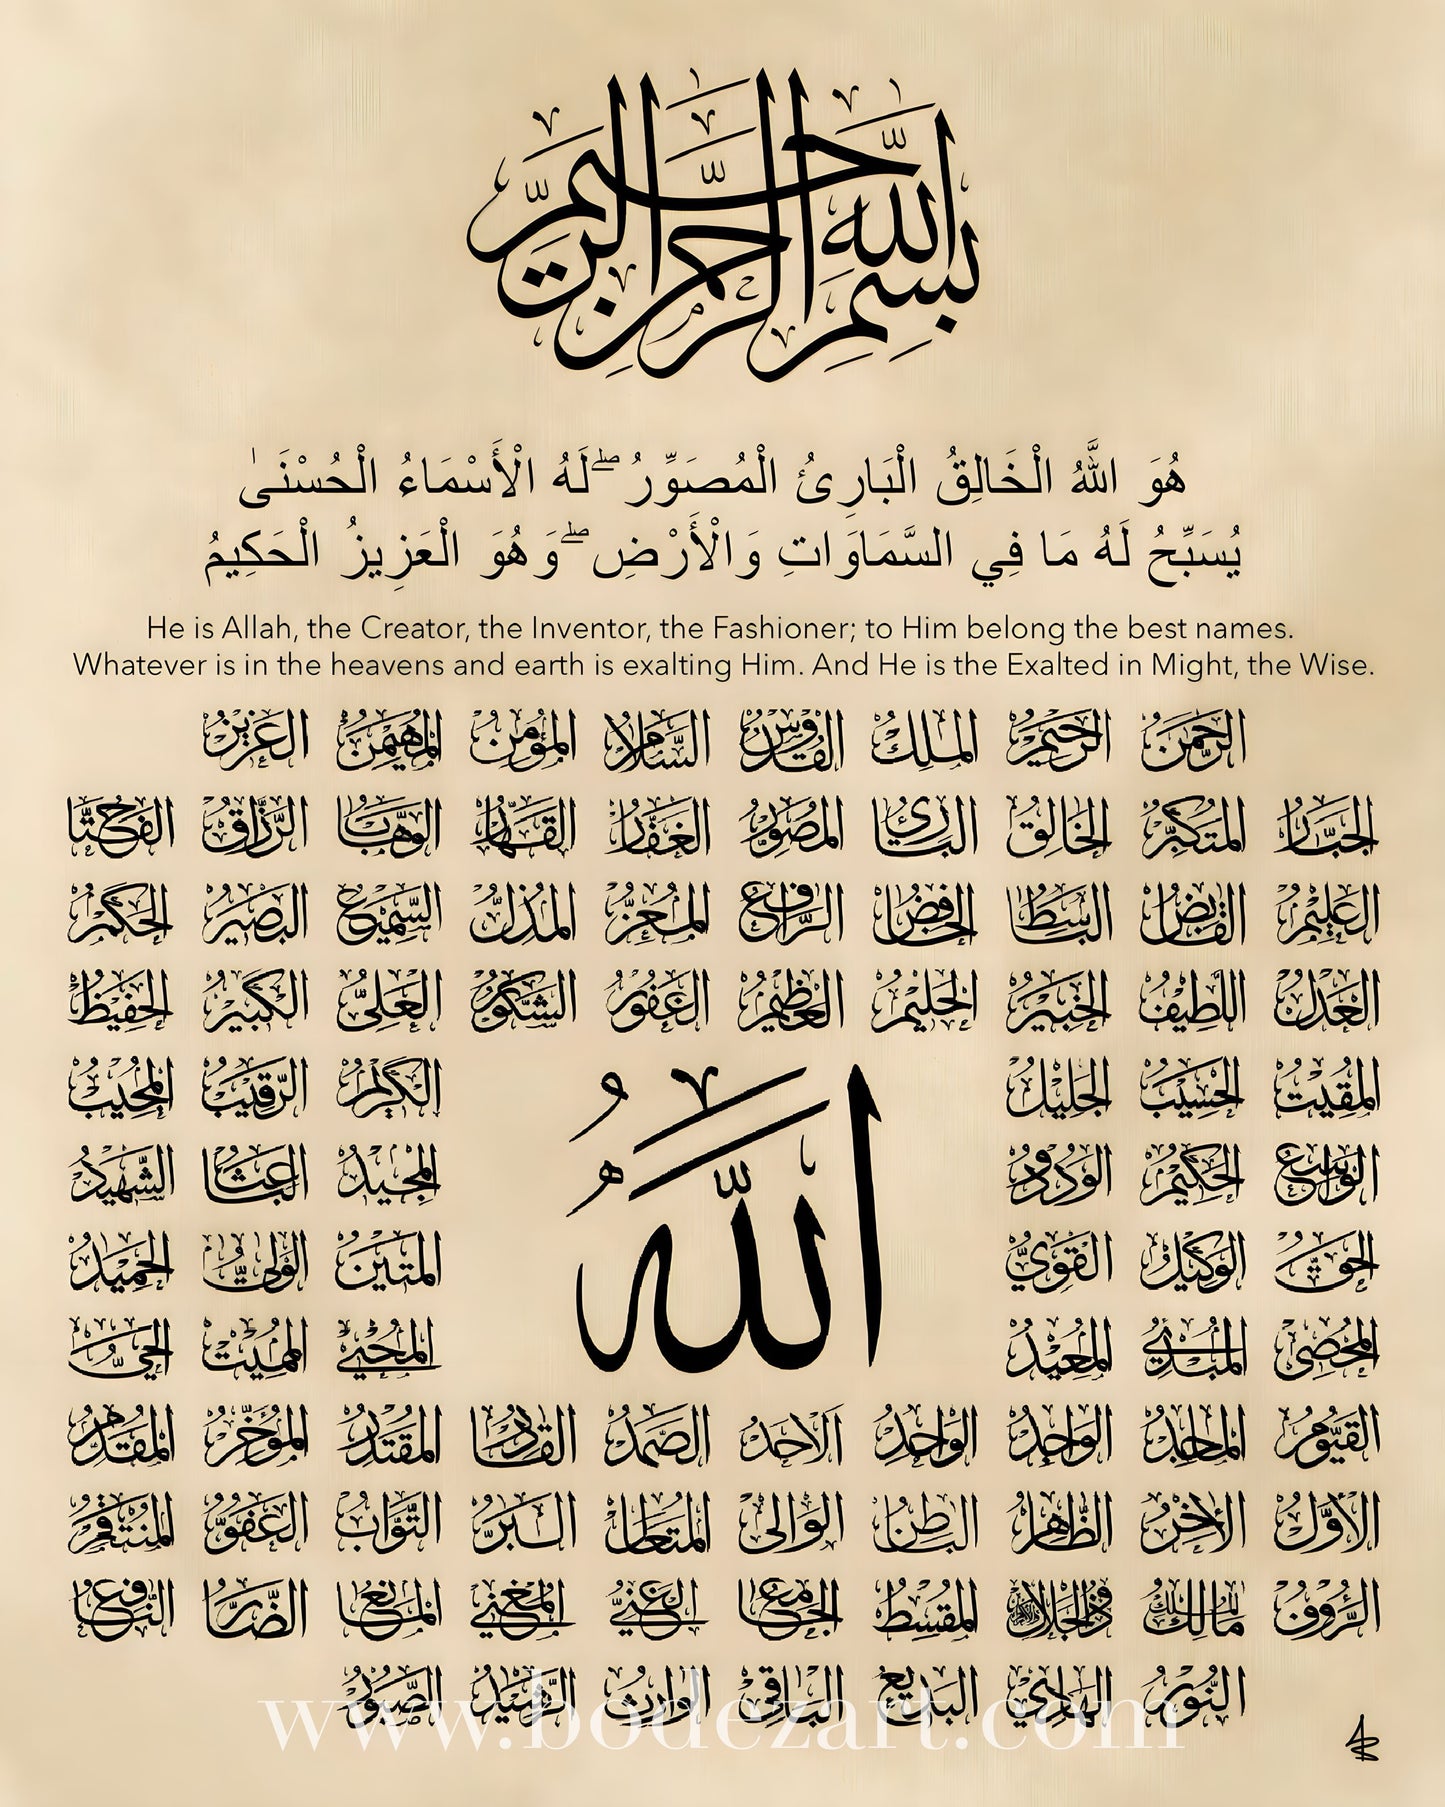 بِسْمِ اللهِ الرَّحْمٰنِ الرَّحِيْمِ
هُوَ اللَّهُ الْخَالِقُ الْبَارِئُ الْمُصَوِّرُ ۖ لَهُ الْأَسْمَاءُ الْحُسْنَىٰ
يُسَبِّحُ لَهُ مَا فِي السَّمَاوَاتِ وَالْأَرْضِ ۖ وَهُوَ الْعَزِيزُ الْحَكِيمُ
He is Allah, the Creator, the Inventor, the Fashioner; to Him belong the best names.
Whatever is in the heavens and earth is exalting Him. And He is the Exalted in Might, the Wise.
الرحمن الرحيم الملك القدوس السلام المؤمن المهيمن العزيز
الجبار المتكبر الخالق البارئ المصور الغفار القهار الوهاب الرزاق الفتاح
العليم القابض الباسط الخافض الرافع المعز المذل السميع البصير الحكم
العدل اللطيف الخبير الحليم العظيم الغفور الشكور العلي الكبير الحفيظ
المقيت الحسيب الجليل الكريم الرقيب المجيب
الله
الواسع الحكيم الودود المجيد الباعث الشهيد
الحق الوكيل القوي المتين الولي الحميد
المحصي المبدئ المعيد المحيي المميت الحي
القيوم الماجد الواجد الواحد الاحد الصمد القادر المقتدر المؤخر المقدم
الأول الآخر الظاهر الباطن الوالي المتعال البر التواب العفو المنتقم
الرؤوف مالك الملك ذو الجلال والإكرام المقسط الجامع الغني المغني المانع الضار النافع
النور الهادي البديع الباقي الوارث الرشيد الصبور
www.bodezart.com